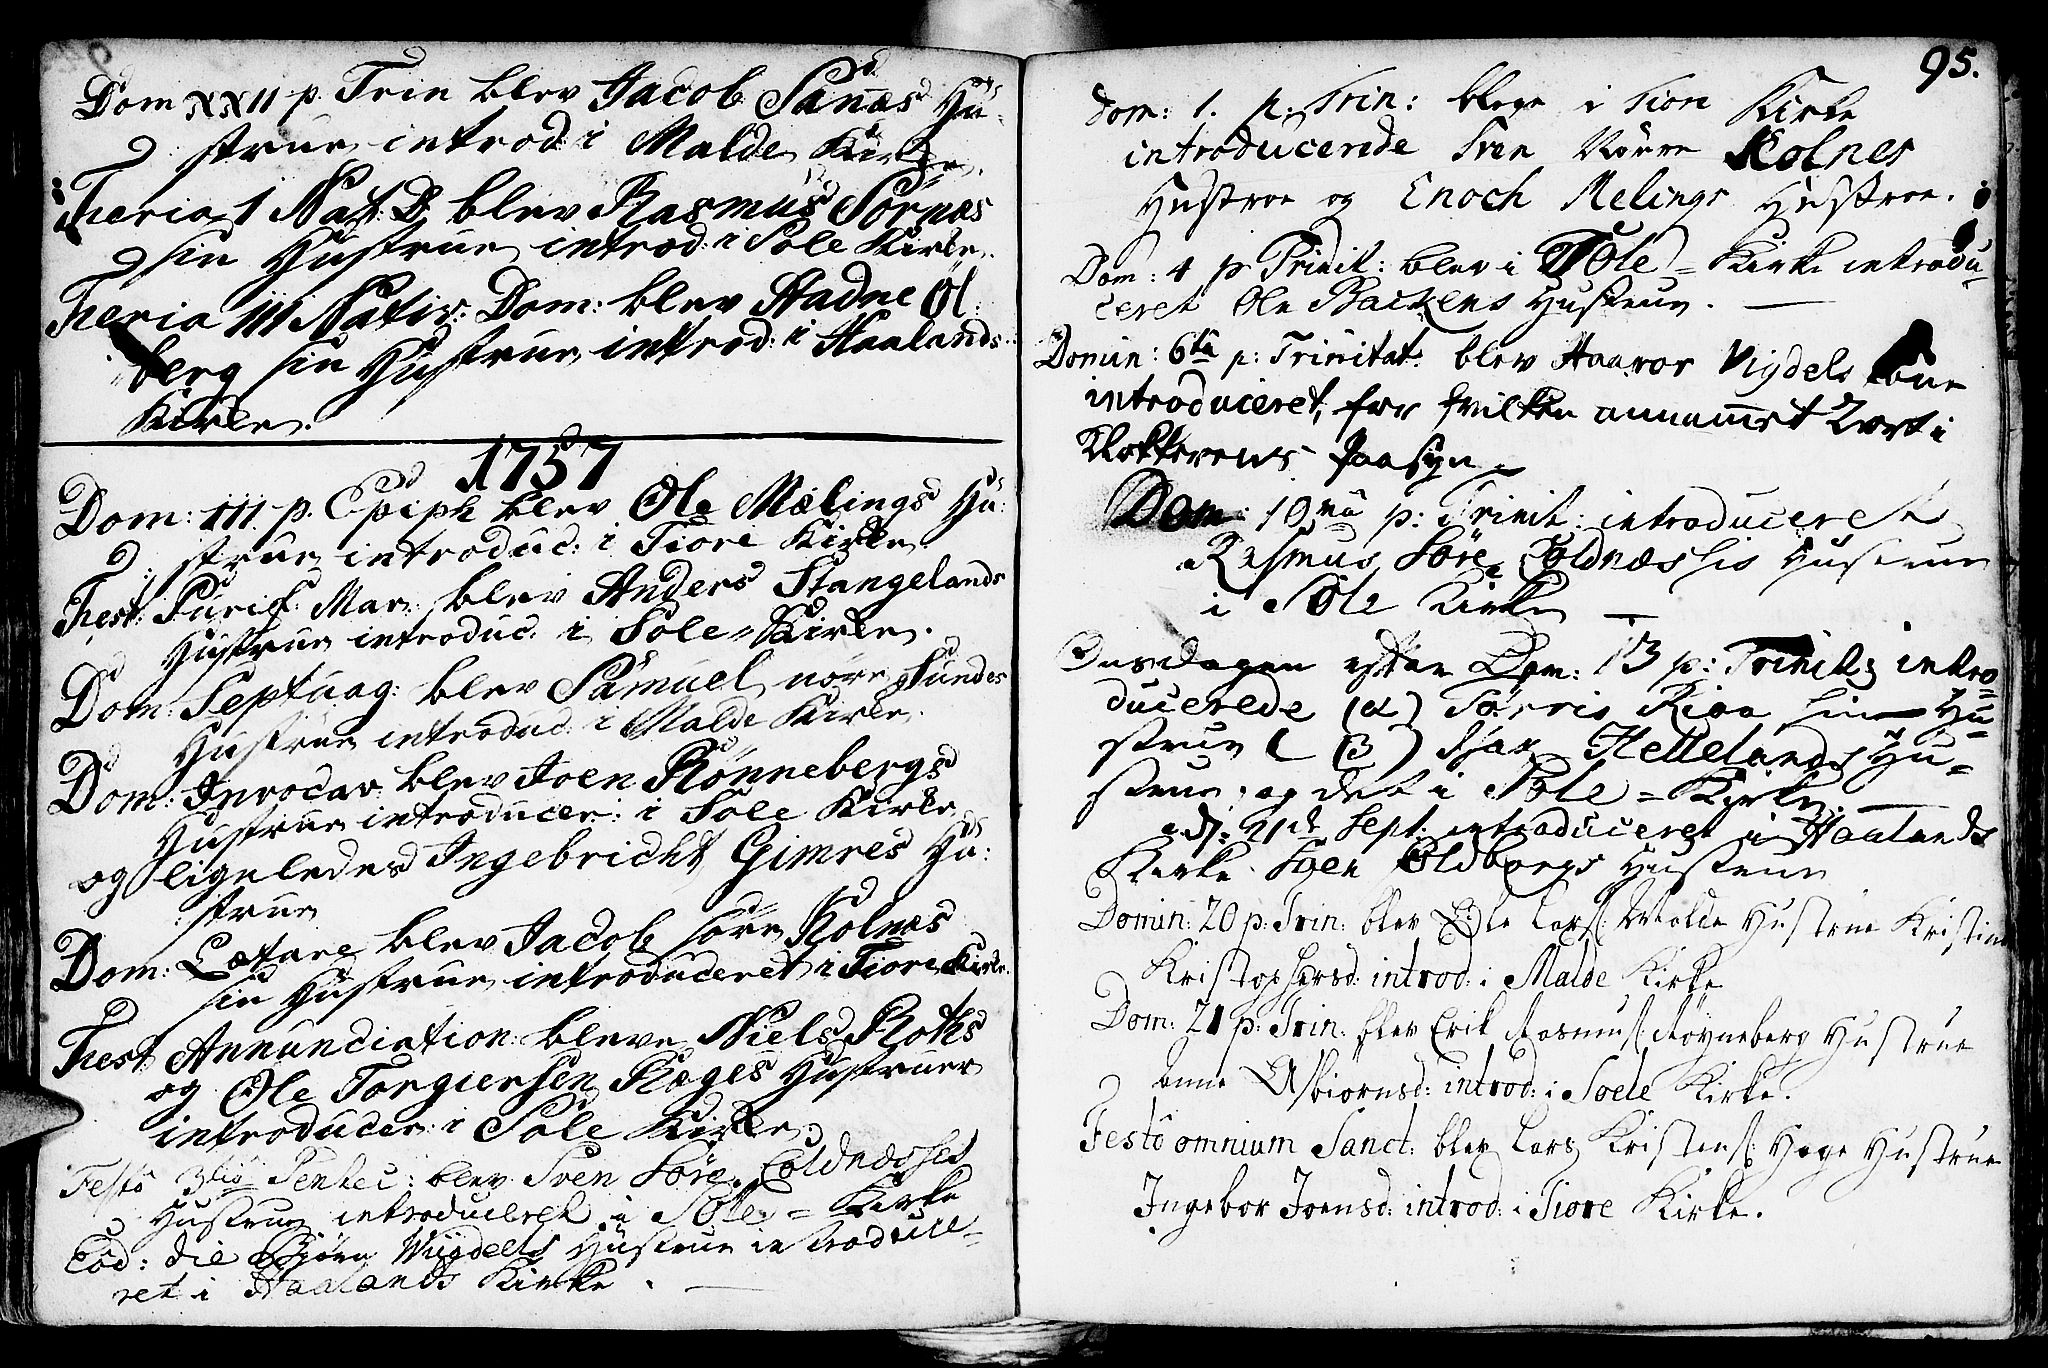 Dom XXII p. Trin blev Jacob Sanæs Hu-
strue introd: i Malde Kirke.
Feria 1 Nat: D. blev Rasmus Sörnæs
sin Hustrue introd: i Sole Kirke.
Feria III Nativ: Dom: blev Aadne Öl:
berg sin Hustrue introd: i Haalands
Kirke.
1757
Dom: III p. Epiph blev Ole Mælings Hu:
strue introduc: i Tiore Kirke.
Fest: Purif: Mar: blev Anders Stangelands
Hustrue introduc. i Sole-Kirke.
Dom: Septuag: blev Samuel nöre Sundes
Hustrue introduc: i Malde Kirke.
Dom: Invocav: blev Joen Rönnebergs
Hustrue introducer: i Sole Kirke
og ligeledes Ingebricht Gimres Hu:
strue
Dom: Lætare blev Jacob söre Kolnæs
sin Hustrue introduceret i Tiore Kirke.
Fest: Annunciation: bleve Niels Roths
og Ole Torgiersen Ræges Hustruer
introducer: i Sole Kirke.
Festo 3tio Pentec: blev Sven Söre Coldnæsses
Hustrue introduceret i Sole = Kirke
Eod: die Björn Wiigdels Hustrue introduce-
ret i Haalands Kirke.
95.
Dom: 1. p. Trin: bleve i Tiore Kirke
introducerede Sven Nörre Kolnes
Hustroe og Enoch Melings Hustroe.
Dom: 4 p Trinit: blev i Sole = Kirke introdu-
ceret Ole Backens Hustrue.
Domin: 6ta p: Trinitat: blev Haavor Vigdels Kone
introduceret, for hvilken annammet 2 ort i
Klokkerens Paasyn
Dom: 10ma p: Trinit: introduceret
Rasmus Söre Coldnæs his Hustrue
i Sole Kirke
Onsdagen efter Dom: 13 p: Trinit: intro-
ducerede (α) Törris Riaa sin Hu-
strue (β) Hellelands Hu-
strue, og det i Sole = Kirke.
d: 21de Sept: introduceret i Haalands
Kirke Soen Oldborgs Hustrue
Domin: 20 p: Trin: blev Ole Lars: Malde Hustrue Kristine
Kristophersd: introd: i Malde Kirke
Dom: 21 p: Trin: blev Erik Rasmus: Röyneberg Hustrue
Anne Asbiornsd: introd: i Soele Kirke.
Festo omnium Sanct: blev Lars Kristens: Hage Hustrue
Ingebor Joensd: introd: i Tiore Kirke.